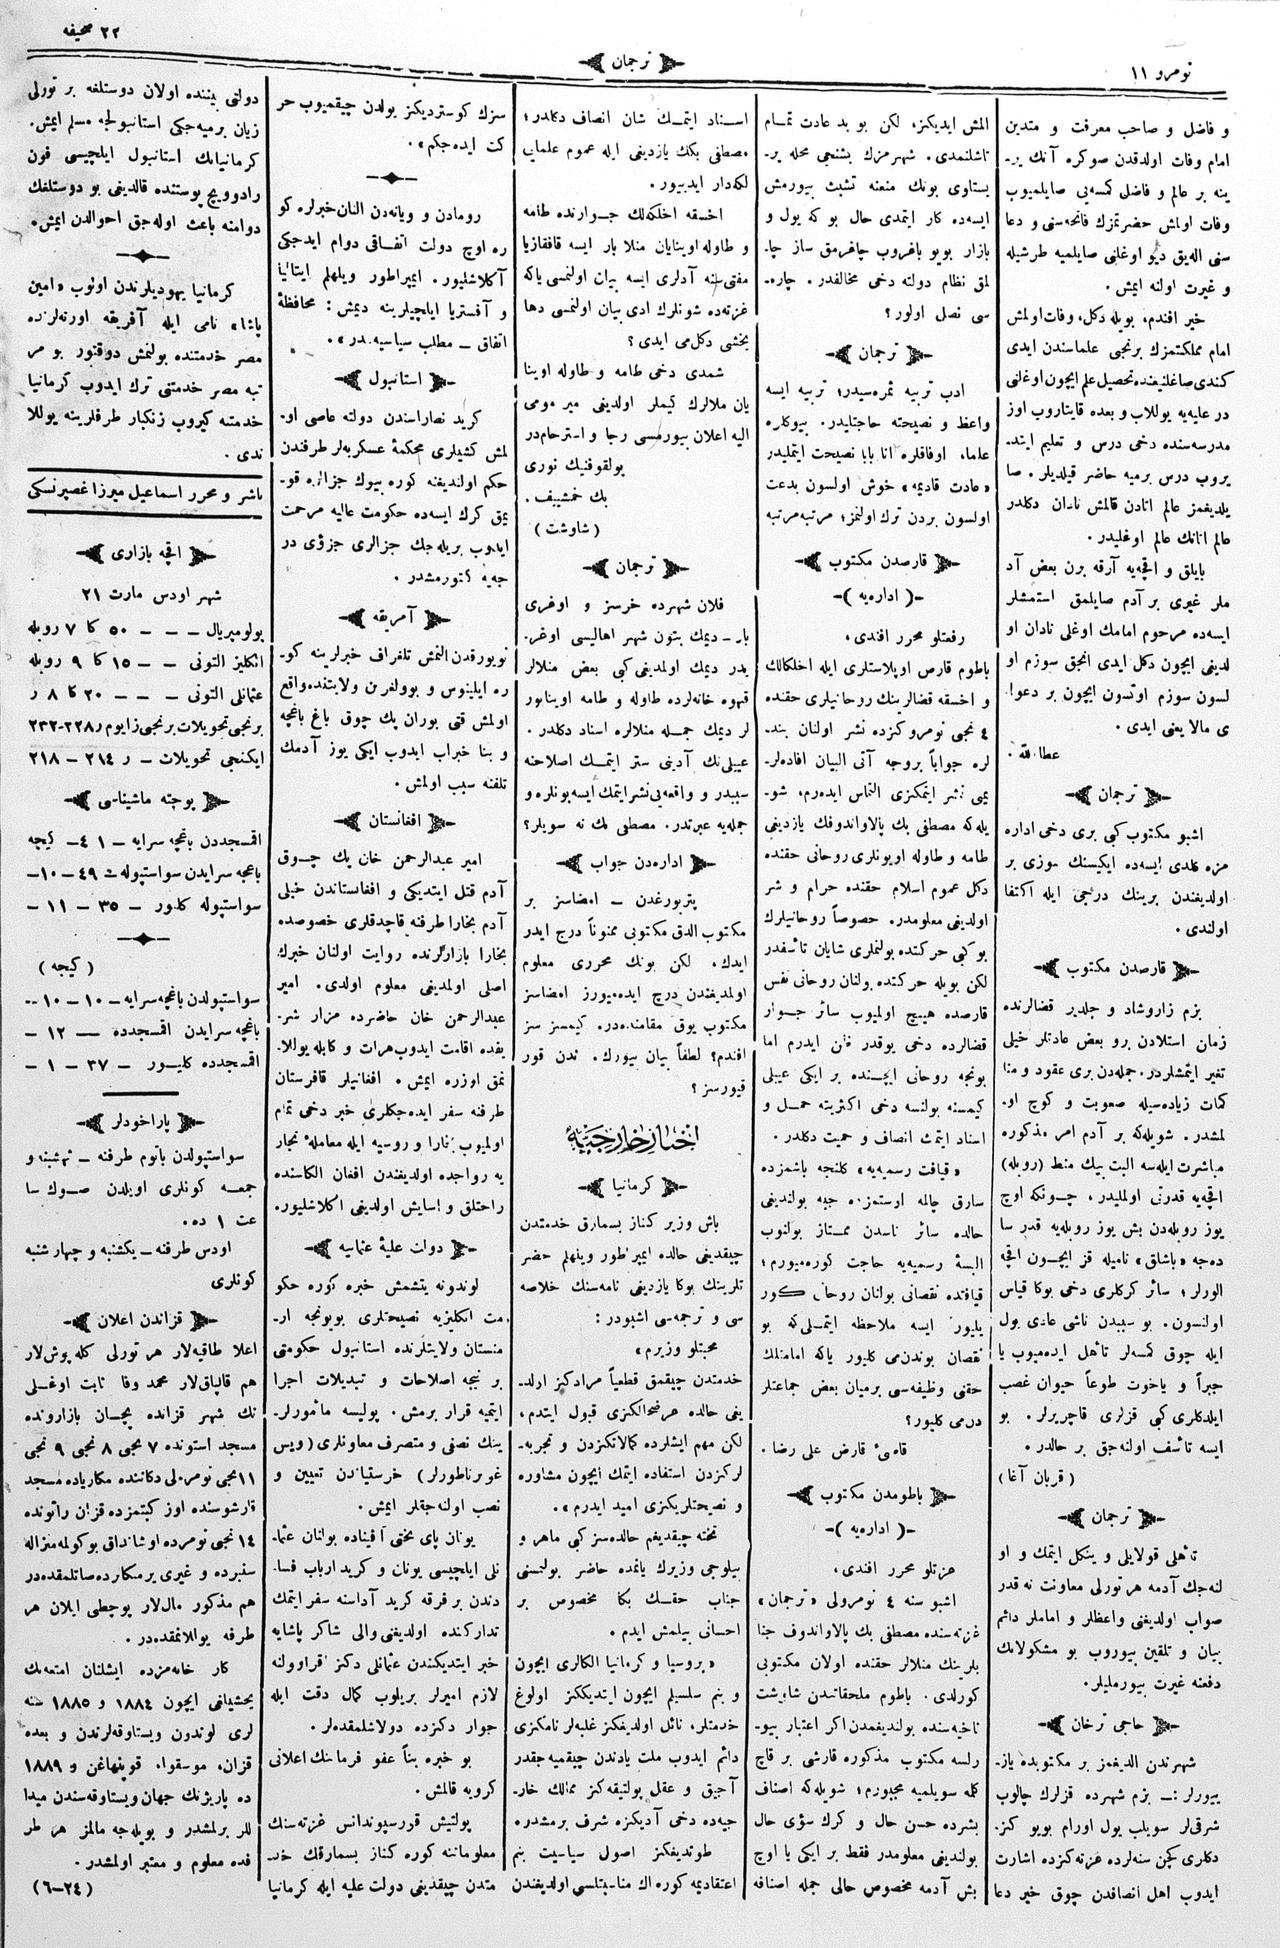 نومرو ١١
ترجمان
٢٢ صحيفه
و فاضل و صاحب معرفت و متدين
امام وفات اولدقدن صوكره آنك ير-
ينه بر عالم و فاضل كمسه‌يى صايلميوب
وفات اولمش حضرتمزك فاتحه‌سنى و دعا
سنى اله‌يق ديو اوغلنى صايلميه طرشيله
و غيرت اولنه ايمش.
خير افندم، بويله دكل، وفات اولمش
امام مملكتمزك برنجى علماسندن ايدى
كندى صاغلغينده تحصيل علم ايچون اوغلنى
در عليه‌يه يوللاب و بعده قايتاروب اوز
مدرسه‌سنده دخى درس و تعليم ايتد-
يروب درس برميه حاضر قيلديلر. صا
يلديغمز عالم اتادن قالمش نادان دكلدر
عالم اتانك عالم اوغليدر.
بايلق و اقچه‌يه آرقه برن بعض آد
ملر غيرى بر آدم صايلمق استمشلر
ايسه‌ده مرحوم امامك اوغلى نادان او
لديغى ايچون دكل ايدى انجق سوزم او
لسون سوزم اوتسون ايچون بر دعوا
ى مالا يعنى ايدى.
عطا ﷲ.
ترجمان
اشبو مكتوب كبى برى دخى اداره
مزه كلدى ايسه‌ده ايكيسنك سوزى بر
اولديغندن برينك درجى ايله اكتفا
اولندى.
قارصدن مكتوب
بزم زاروشاد و جلدير قضالرنده
زمان استلادن برو بعض عادتلر خيلى
تغير ايتمشلردر. جمله‌دن برى عقود و منا
كحات زياده‌سيله صعوبت و كوچ او-
لمشدر. شويله‌كه بر آدم امر مذكوره
مباشرت ايله‌سه البت بيك منط (روبله)
اقچه‌يه قدرتى اولمليدر، چونكه اوچ
يوز روبله‌دن بش يوز روبله‌يه قدر سا
ده‌جه «باشلق» ناميله قز ايچون اقچه
الورلر؛ سائر كركلرى دخى بوكا قياس
اولنسون. بو سببدن ناشى عادى يول
ايله چوق كمسه‌لر تأهل ايده‌ميوب يا
جبراً و ياخوت طوعاً حيوان غصب
ايلدكلرى كبى قزلرى قاچريرلر. بو
ايسه تأسف اولنه‌جق بر حالدر.
(قربان آغا)
ترجمان
تأهلى قولايلى و ينكل ايتمك و او
لنه‌جك آدمه هر تورلى معاونت نه قدر
صواب اولديغنى واعظلر و اماملر دائم
بيان و تلقين بيوروب بو مشكولاتك
دفعنه غيرت بيورمليلر.
حاجى ترخان
شهرندن الديغمز بر مكتوبده ياز-
بيورلر: بزم شهرده قزلرك چالوب
شرقى‌لر سويلب يول اورام بويو كز-
دكلرى كچن سنه‌لرده غزته‌كزده اشارت
ايدوب اهل انصافدن چوق خير دعا
المش ايديكز. لكن بو بد عادت تمام
تاشلنمدى. شهرمزك بشنجى محله پر-
يستاوى بونك منعنه تشبث بيورمش
ايسه‌ده كار ايتمدى حال بو كه يول و
بازار بويو باغروب چاغرمق ساز چا-
لمق نظام دولته دخى مخالفدر. چاره-
سى نصل اولور؟
ترجمان
ادب تربيه ثمره‌سيدر؛ تربيه ايسه
واعظ و نصيحته حاجتليدر. بيوكلره
علماء، اوفاقلره اتا بابا نصيحت ايتمليدر
«عادت قديمه» خوش اولسون بدعت
اولسون بردن ترك اولنمز؛ مرتبه مرتبه
قارصدن مكتوب
-(اداره‌يه)-
رفعتلو محرر افندى،
باطوم قارص اوبلاستلرى ايله اخلكلك
و اخسقه قضالرينك روحانيلرى حقنده
٤ نجى نومروكزده نشر اولنان بند-
لره جواباً بروجه آتى البيان افاده‌لر-
يمى نشر ايتمكزى التماس ايده‌رم، شو-
يله‌كه مصطفى بك پالاواندوفك يازديغى
طامه و طاوله اويونلرى روحانى حقنده
دكل عموم اسلام حقنده حرام و شر
اولديغى معلومدر. خصوصاً روحانيلرك
بو كبى حركتده بولنملرى شايان تأسفدر
لكن بويله حركتده بولنان روحانى نفس
قارصده هيچ اولميوب سائر جوار
قضالرده دخى يوقدر ظن ايدرم اما
بونجه روحانى ايچنده بر ايكى عيبلى
كيمسنه بولنسه دخى اكثريته حمل و
اسناد ايتمك انصاف و حميت دكلدر.
«قيافت رسميه‌يه» كلنجه باشمزده
سارق چالمه اوستمزده جبه بولنديغى
حالده سائر ناسدن ممتاز بولنوب
البسهٔ رسميه‌يه حاجت كوره‌ميورم؛
قيافتده نقصانى بولنان روحانى كور
يليور ايسه ملاحظه ايتملى‌كه بو
نقصان بوندن‌مى كليور ياكه امامتلك
حقنى وظيفه‌سى برميان بعض جماعتلر
دن‌مى كليور؟
قاضئ قارص على رضا.
باطومدن مكتوب
-(اداره‌يه)-
عزتلو محرر افندى،
اشبو سنه ٤ نومرولى «ترجمان»
غزته‌سنده مصطفى بك پالاواندوف جنا
بلرينك منلالر حقنده اولان مكتوبى
كورلدى. باطوم ملحقاتندن شاوشت
ناخيه‌سنده بولنديغمدن اكر اعتبار بيو-
رلسه مكتوب مذكوره قارشى بر قاچ
كلمه سويلميه مجبورم؛ شويله‌كه اصناف
بشرده حسن حال و كرك سؤى حال
بولنديغى معلومدر فقط بر ايكى يا اوچ
بش آدمه مخصوص حالى جمله اصنافه
اسناد ايتمك شان انصاف دكلدر؛
مصطفى بكك يازديغى ايله عموم علمايى
لكه‌دار ايديبور.
اخسقه اخلكه‌لك جوارنده طامه
و طاوله اوينايان منلا بار ايسه قافقازيا
مفتى‌سنه آدلرى ايسه بيان اولنمسى ياكه
غزته‌ده شونلرك ادى بيان اولنمسى دها
يخشى دكل‌مى ايدى؟
شمدى دخى طامه و طاوله اوينا
يان ملالرك كيملر اولديغى مير مومى
اليه اعلان بيورمسى رجا و استرحام‌در
پولقوفنيك نورى
بك خمشييف.
(شاوشت)
ترجمان
فلان شهرده خرسز و اوغرى
بار ـ ديمك بتون شهر اهاليسى اوغر-
يدر ديمك اولمديغى كبى بعض منلالر
قهوه خانه‌لرده طاوله و طامه اوينايور
لر ديمك جمله منلالره اسناد دكلدر.
عيبلى‌نك آدينى ستر ايتمك اصلاحنه
سببدر و واقعه‌يى نشر ايتمك ايسه بونلره و
جمله‌يه عبرتدر. مصطفى بك نه سويلر؟
اداره‌دن جواب
پتربورغدن ـ امضاسز بر
مكتوب الدق مكتوبى ممنوناً درج ايدر
ايدك. لكن بونك محررى معلوم
اولمديغندن درج ايده‌ميورز امضاسز
مكتوب يوق مقامنده‌در. كيمسز سز
افندم؟ لطفاً بيان بيورك. ندن قور
قيورسز؟
اخبار خارجيه
كرمانيا
باش وزير كناز بسمارق خدمتدن
چيقديغى حالده ايمپراطور ويلهلم حضر
تلرينك بوكا يازديغى نامه‌سنك خلاصه
سى و ترجمه‌سى اشبودر:
محبتلو وزيرم
خدمتدن چيقمق قطعياً مرادكيز اولد-
يغى حالده عرضحالكزى قبول ايتدم،
لكن مهم ايشلرده كمالاتكزدن و تجربه-
لركزدن استفاده ايتمك ايچون مشاوره
و نصيحتلريكزى اميد ايدرم».
تخته چيقديغم حالده‌سز كبى ماهر و
بيلوجى وزيرك يانمده حاضر بولنمسنى
جناب حقك بكا مخصوص بر
احسانى بيلمش ايدم.
«پروسيا و كرمانيا الكالرى ايچون
و بنم سلسيلم ايچون ايتديككز اولوغ
خدمتلر، نائل اولديغكز غلبه‌لر نامكزى
دائم ايدوب ملت يادندن چيقميه‌جقدر
آجيق و عقل پولتيقه‌كز ممالك خار-
جيه‌ده دخى آديكزه شرف برمشدر.
طوتديغكز اصول سياسيت بنم
اعتقاديمه كوره اك مناسبتليسى اولديغندن
سزك كوستردیكز يولدن چيقميوب حر
كت ايده‌جكم».
رومادن و ويانه‌دن النان خبرلره كو
ره اوچ دولت اتفاقى دوام ايدجكى
آكلاشليور. ايمپراطور ويلهلم ايتاليا
و آفستريا ايلچيلرينه ديمش: محافظهٔ
اتفاق ـ مطلب سياسيه‌مدر».
استانبول
كريد نصاراسندن دولته عاصى او-
لمش كشيلرى محكمهٔ عسكريه‌لر طرفندن
حكم اولنديغنه كوره بيوك جزالره قو-
يمق كرك ايسه‌ده حكومت عاليه مرحمت
ايدوب بريله‌جك جزالرى جزؤى در
جه‌يه كتورمشدر.
آمريقه
نويورقدن النمش تلغراف خبرلرينه كو-
ره ايلينوس و بوولفرين ولايتنده واقع
اولمش قتى بوران پك چوق باغ باغچه
و بنا خراب ايدوب ايكى يوز آدمك
تلفنه سبب اولمش.
افغانستان
امير عبدالرحمن خان پك چوق
آدم قتل ايتديكى و افغانستاندن خيلى
آدم بخارا طرفنه قاچدقلرى خصوصده
بخارا بازارلرنده روايت اولنان خبرك
اصلى اولمديغى معلوم اولدى. امير
عبدالرحمن خان حاضرده مزار شر-
يفده اقامت ايدوب هرات و كابله يوللا-
نمق اوزره ايمش. افغانيلر قافرستان
طرفنه سفر ايده‌جكلرى خبر دخى تمام
اولميوب بخارا و روسيه ايله معاملهٔ تجار
يه رواجده اولديغندن افغان الكاسنده
راحتلق و اسايش اولديغى اكلاشليور.
دولت عليهٔ عثمانيه
لوندونه يتشمش خبره كوره حكو
مت انكليزيه نصيحتلرى بويونجه ار-
منستان ولايتلرنده استانبول حكومتى
بر نيجه اصلاحات و تبديلات اجرا
ايتميه قرار برمش. پوليسه مأمورلر-
ينك نصفى و متصرف معاونلرى (ويس
غوبرناطورلر) خرستياندن تعيين و
نصب اولنه‌جقلر ايمش.
يونان پاى تختى آفيناده بولنان عثما-
نلى ايلچيسى يونان و كريد ارباب فسا-
دندن بر فرقه كريد آداسنه سفر ايتمك
تداركنده اولديغنى والى شاكر پاشايه
خبر ايتديكندن عثمانلى دكز قراوولنه
لازم اميرلر بريلوب كمال دقت ايله
جوار دكزده دولاشلمقده‌لر.
بو خبره بناً عفو فرماننك اعلانى
كروبه قالمش.
پولتيش قورر‌سپوندانس غزته‌سنك
معلوماتنه كوره كناز بسمارقك خد-
متدن چيقديغى دولت عليه ايله كرمانيا
دولتى بيننده اولان دوستلغه بر تورلى
زيان برميه‌جكى استانبولجه مسلم ايمش.
كرمانيانك استانبول ايلچيسى فون
رادوويچ پوستنده قالديغى بو دوستلغك
دوامنه باعث اوله‌جق احوالدن ايمش.
كرمانيا يهوديلرندن اولوب «امين
پاشا» نامى ايله آفريقه اورته‌لرنده
مصر خدمتنده بولنمش دوقتور بو مر
تبه مصر خدمتنى ترك ايدوب كرمانيا
خدمتنه كيروب زنكبار طرفلرينه يوللا
ندى.
ناشر و محرر اسماعيل ميرزا غصپرنسكى
اقچه بازارى
شهر اودس مارت ٢١
پولومپريال ـ ـ ـ ٥٠ كا ٧ روبله
انكليز التونى ـ ـ ١٥ كا ٩ روبله
عثمانلى التونى ـ ـ ـ ٢٠ كا ٨ ر
برنجى تحويلات برنجى زايوم ر ٢٢٨-٢٣٢
ايكنجى تحويلات ـ ر ٢١٤ ـ ٢١٨
پوچته ماشيناسى
اقمسجددن باغچه سرايه ـ ١ ٤ـ كيچه
باغچه سرايدن سواستپوله ـ ٤٩ ـ ١٠ ـ
سواستپوله كلدور ـ ٣٥ ـ ١١ ـ
(كيجه)
سواستپولدن باغچه سرايه ـ ١٠ ـ ١٠ ـ
باغچه سرايدن اقمسجدده ـ ١٢ ـ
اقمسجدده كليور ـ ٣٧ ـ ١ ـ
پاراخودلر
سواستپولدن باتوم طرفنه ـ شنبه و
جمعه كونلرى اويلدن صوك سا
عت ١ ده.
اودس طرفنه ـ يكشنبه و چهار شنبه
كونلرى
قزاندن اعلان
اعلا طاقيه‌لار هر تورلى كله پوش‌لار
هم قالپاق‌لار محمد وفا ثابت اوغلى
نك شهر قزانده پچان بازارونده
مسجد استونده ٧ نجى ٨ نجى ٩ نجى
١١ نجى نومرولى دكاننده مكارياده مسجد
قارشوسنده اوز كيبتمزده قزان راتونده
١٤ نجى نومرده اوشانداق بوكولمه منزاله
سفبرده و غيرى يرمنكارده صاتلمقده‌در
هم مذكور مال‌لار پوچطى ايلان هر
طرفه يوللانمقده‌در.
كار خانه‌مزده ايشلنان امتعه‌نك
يخشيلغى ايچون ١٨٨٤ و ١٨٨٥ سنه
لرى لوندون ويستاوقه‌لرندن و بعده
قزان، موسقوا، قوپنهاغن و ١٨٨٩
ده پاريژنك جهان ويستاوقه‌سندن ميدا
للر برلمشدر و بويله‌جه مالمز هر طر
فده معلوم و معتبر اولمشدر.
(٢٤-٦)